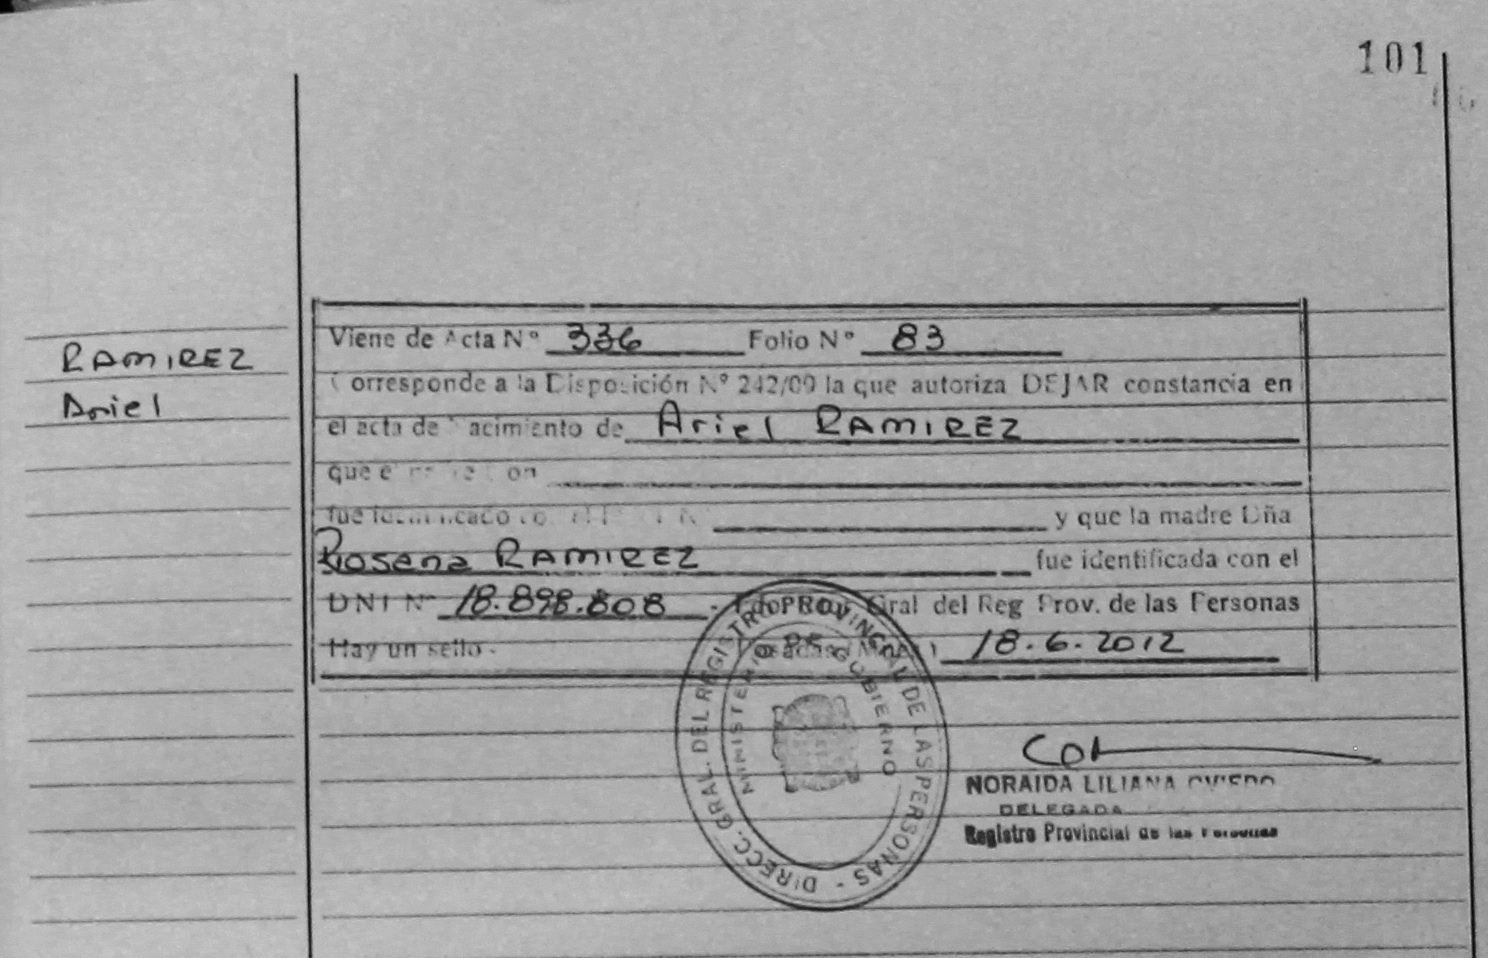 101
RAMIREZ
Ariel
Viene de Acta Nº 336 Folio Nº 83
Corresponde a la Disposición Nº 242/09 la que autoriza DEJAR constancia en
el acta de Nacimiento de Ariel RAMIREZ
que el
fue identificado y que la madre Dña
Rosana RAMIREZ fue identificada con el
DNI Nº 18.898.808 - Fdo. Gral del Reg Prov. de las Personas
Hay un sello.- 18.6.2012
DIRECC. GRAL. DEL REGISTRO PROVINCIAL DE LAS PERSONAS -
MINISTERIO DE GOBIERNO
NORAIDA LILIANA OVIEDO
DELEGADA
Registro Provincial de las Personas